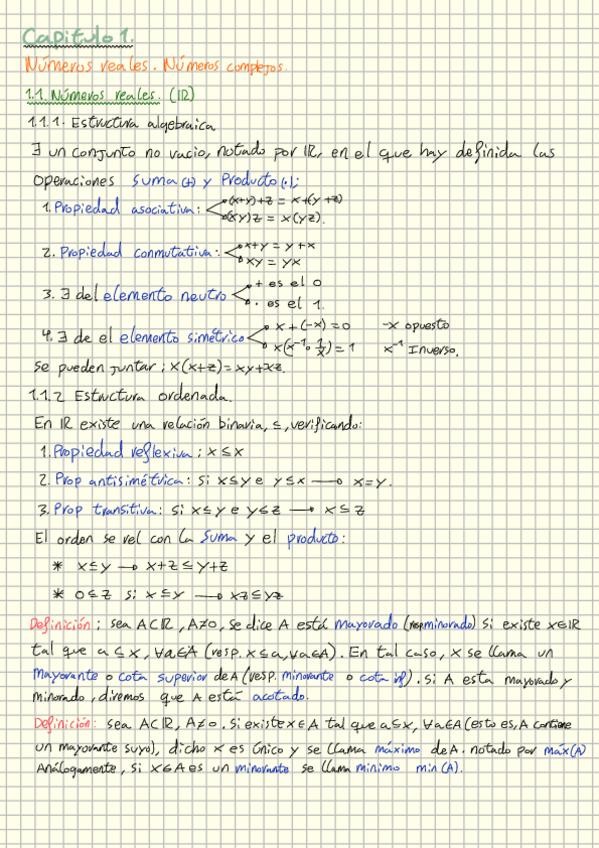 Capítulo 1.
Números reales. Números complejos.
1.1. Números reales. (IR)
1.1.1. Estructura algebraica
∃ un conjunto no vacio, notado por IR, en el que hay definida las
operaciones suma (+) y Producto (·);
1. Propiedad asociativa: (x+y)+z = x+(y+z)
(xy)z = x(yz).
2. Propiedad conmutativa: x+y = y+x
xy = yx
3. ∃ del elemento neutro + es el 0
· es el 1.
4. ∃ de el elemento simétrico x+(-x)=0 -x opuesto
x(x⁻¹ o 1/x)=1 x⁻¹ Inverso.
Se pueden juntar; x(x+z)=xy+xz.
1.1.2 Estructura ordenada.
En IR existe una relación binaria, ≤, verificando:
1. Propiedad reflexiva; x≤x
2. Prop antisimétrica: si x≤y e y≤x → x=y.
3. Prop transitiva: si x≤y e y≤z → x≤z
El orden se rel con la suma y el producto:
* x≤y → x+z≤y+z
* 0≤z si x≤y → xz≤yz
Definición: sea A⊂IR, A≠∅, se dice A está mayorado (resp minorado) si existe x∈IR
tal que a≤x, ∀a∈A (resp. x≤a, ∀a∈A). En tal caso, x se llama un
Mayorante o cota superior de A (resp. minorante o cota inf). Si A esta mayorado y
minorado, diremos que A está acotado.
Definición: sea A⊂IR, A≠∅. Si existe x∈A tal que a≤x, ∀a∈A (esto es, A contiene
un mayorante suyo), dicho x es único y se llama máximo de A. notado por máx(A)
Análogamente, si x∈A es un minorante se llama mínimo min(A).